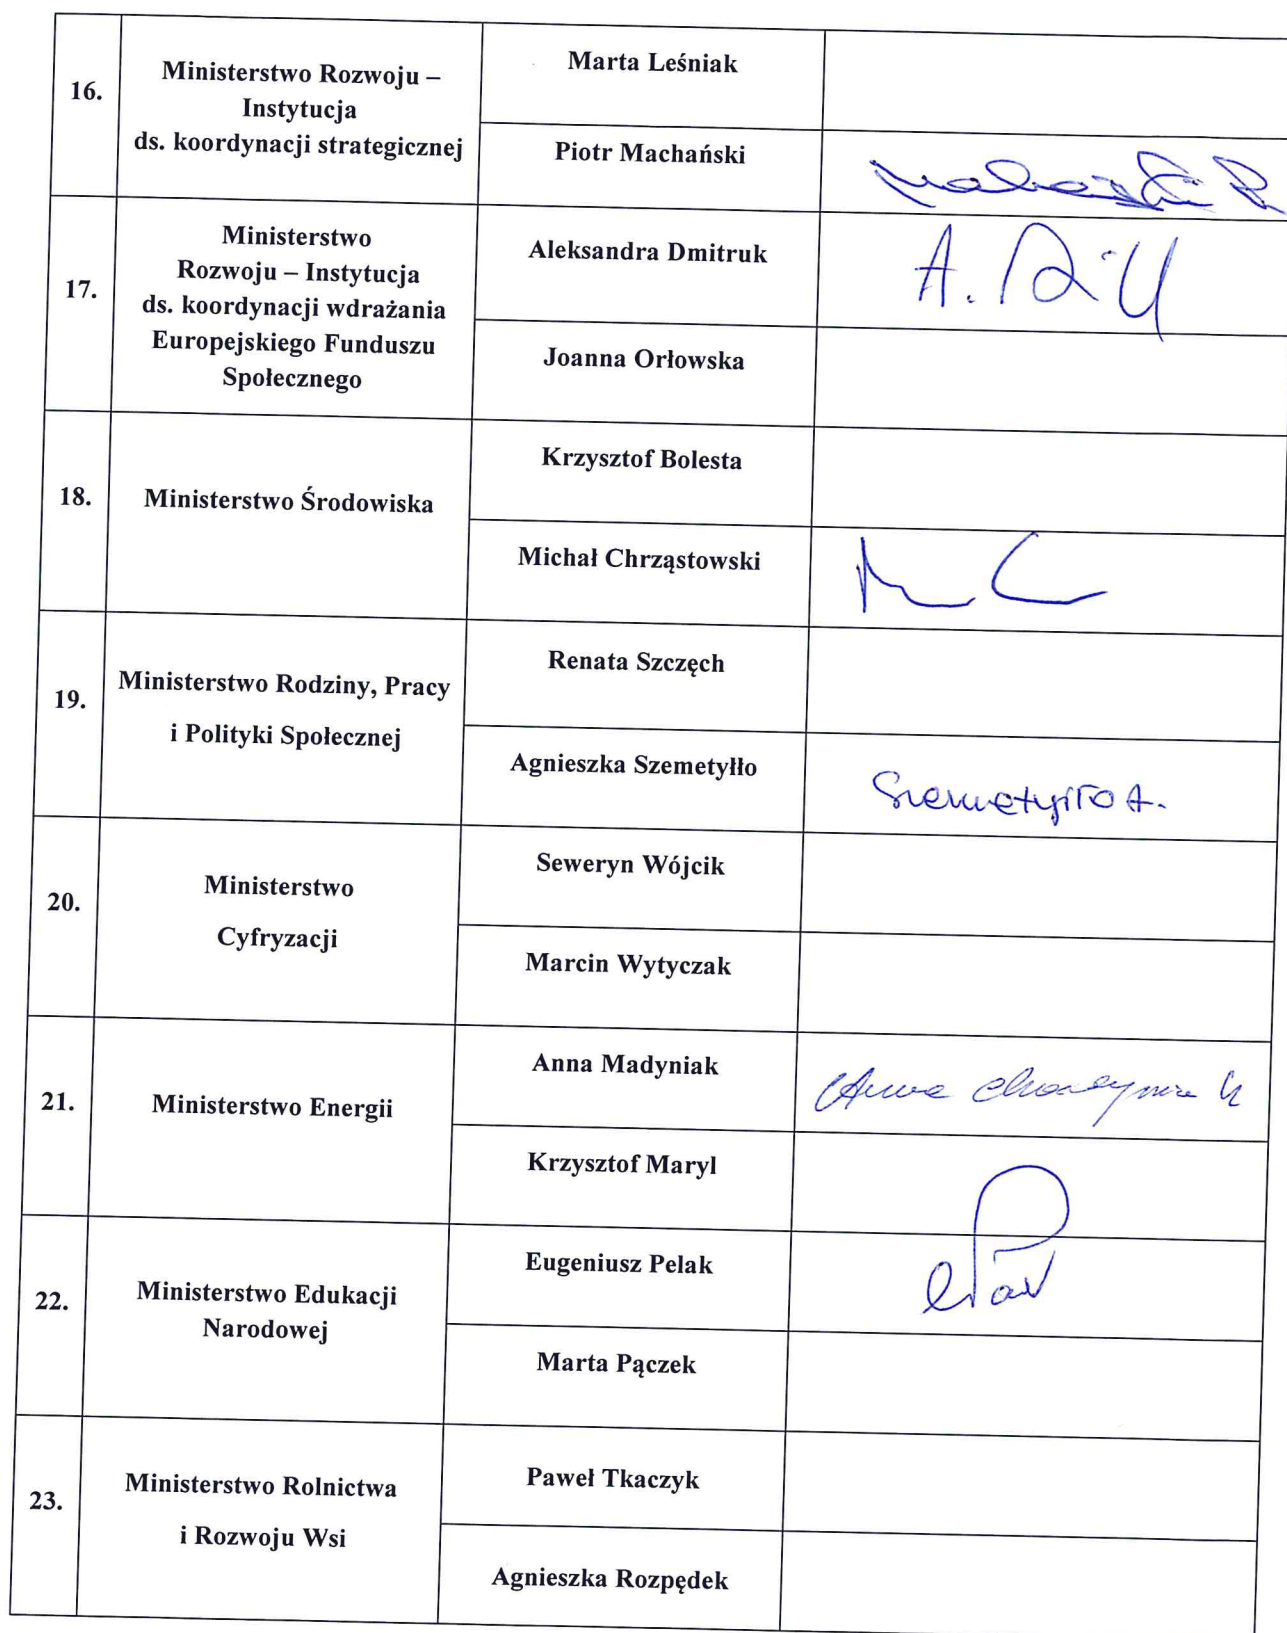 16.
Ministerstwo Rozwoju –
Instytucja
ds. koordynacji strategicznej
Marta Leśniak
Piotr Machański
17.
Ministerstwo
Rozwoju – Instytucja
ds. koordynacji wdrażania
Europejskiego Funduszu
Społecznego
Aleksandra Dmitruk
A.
Joanna Orłowska
18.
Ministerstwo Środowiska
Krzysztof Bolesta
Michał Chrząstowski
19.
Ministerstwo Rodziny, Pracy
i Polityki Społecznej
Renata Szczęch
Agnieszka Szemetyłło
Szemetyłło A.
20.
Ministerstwo
Cyfryzacji
Seweryn Wójcik
Marcin Wytyczak
21.
Ministerstwo Energii
Anna Madyniak
Anna
Krzysztof Maryl
22.
Ministerstwo Edukacji
Narodowej
Eugeniusz Pelak
Marta Pączek
23.
Ministerstwo Rolnictwa
i Rozwoju Wsi
Paweł Tkaczyk
Agnieszka Rozpędek